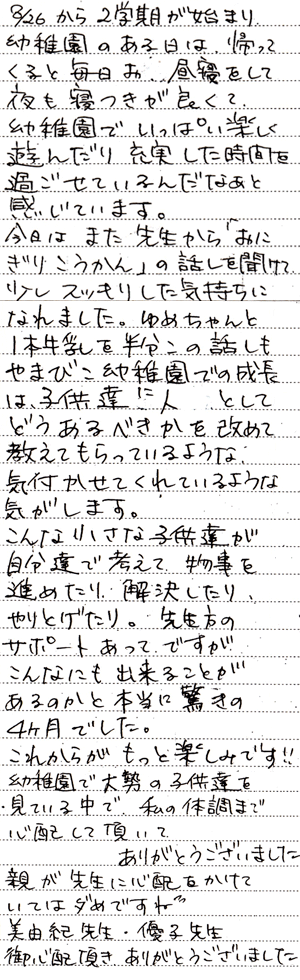 8/26 から 2学期が始まり
幼稚園のある日は、帰って
くると毎日お、昼寝をして
夜も寝つきが良くて、
幼稚園でいっぱい楽しく
遊んだり 充実した時間を
過ごせているんだなあと
感じています。
今日は また 先生から「おに
ぎりこうかん」の話しを聞けて
少し スッキリした気持ちに
なれました。ゆめちゃんと
1本牛乳を半分この話しも
やまびこ幼稚園での成長
は、子供達に 人 として
どうあるべきかを改めて
教えてもらっているような、
気付かせてくれているような
気がします。
こんな小さな子供達が
自分達で考えて 物事を
進めたり、解決したり、
やりとげたり。 先生方の
サポートあって ですが
こんなにも出来ることが
あるのかと本当に驚きの
4ヶ月でした。
これからが もっと楽しみです!!
幼稚園で大勢の子供達を
見ている中で 私の体調まで
心配して頂いて
ありがとうございました
親が先生に心配をかけて
いてはダメですね
美由紀先生・優子先生
御心配頂き ありがとうございました